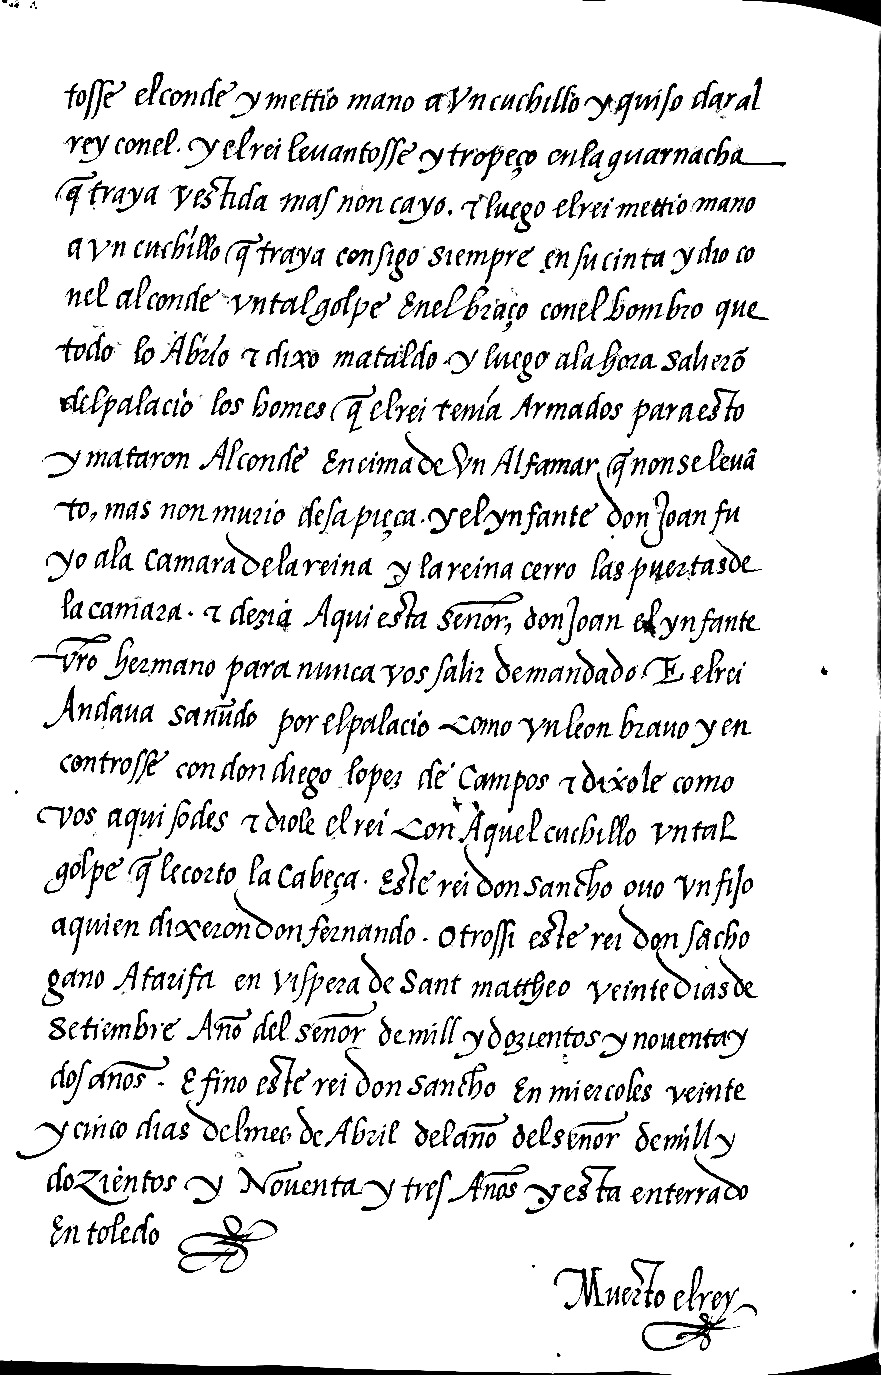 tosse el conde y mettio mano a Vn cuchillo y quiso dar al
rey conel. y el rei leuantosse y tropeço en la guarnacha
q̃ traya vestida mas non cayo. ⁊ luego el rei mettio mano
a vn cuchillo q̃ traya consigo siempre en su cinta y dio co
nel al conde vn tal golpe Enel braço conel hombro que
todo lo Abrio ⁊ dixo mataldo y luego ala hora salierõ
del palacio los homes q̃ el rei tenia Armados para esto
y mataron Al conde Encima de Vn Alfamar q̃ non se leuã
to, mas non murio desa pieça. y el ynfante don Joan fu
yo ala camara de la reina y la reina cerro las puertas de
la camara. ⁊ dezia Aqui esta señor, don Joan el ynfante
vr̃o hermano para nunca vos salir de mandado. E el rei
Andaua sañudo por el palacio como vn leon brauo y en
controsse con don diego lopez de Campos ⁊ dixole como
vos aqui sodes ⁊ diole el rei con Aquel cuchillo vn tal
golpe q̃ le corto la cabeça. Este rei don sancho ouo vn fijo
a quien dixeron don fernando. Otrossi este rei don sãcho
gano A tarifa en vispera de Sant mattheo veinte dias de
Setiembre Año del señor de mill y dozientos y nouenta y
dos años. E fino este rei don sancho En miercoles veinte
y cinco dias del mes de Abril del año del señor de mill y
dozientos y Nouenta y tres Años y esta enterrado
En toledo
Muerto el rey